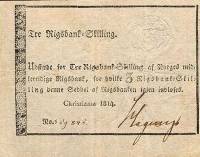 Tre Rigsbank-Skilling.
Udstedes for Tre Rigsbank-Skilling af Norges mid-
lertidige Rigsbank, for hvilke 3 Rigsbank-Skil-
ling denne Seddel af Rigsbanken igien indløses.
Christiania 1814.
No.